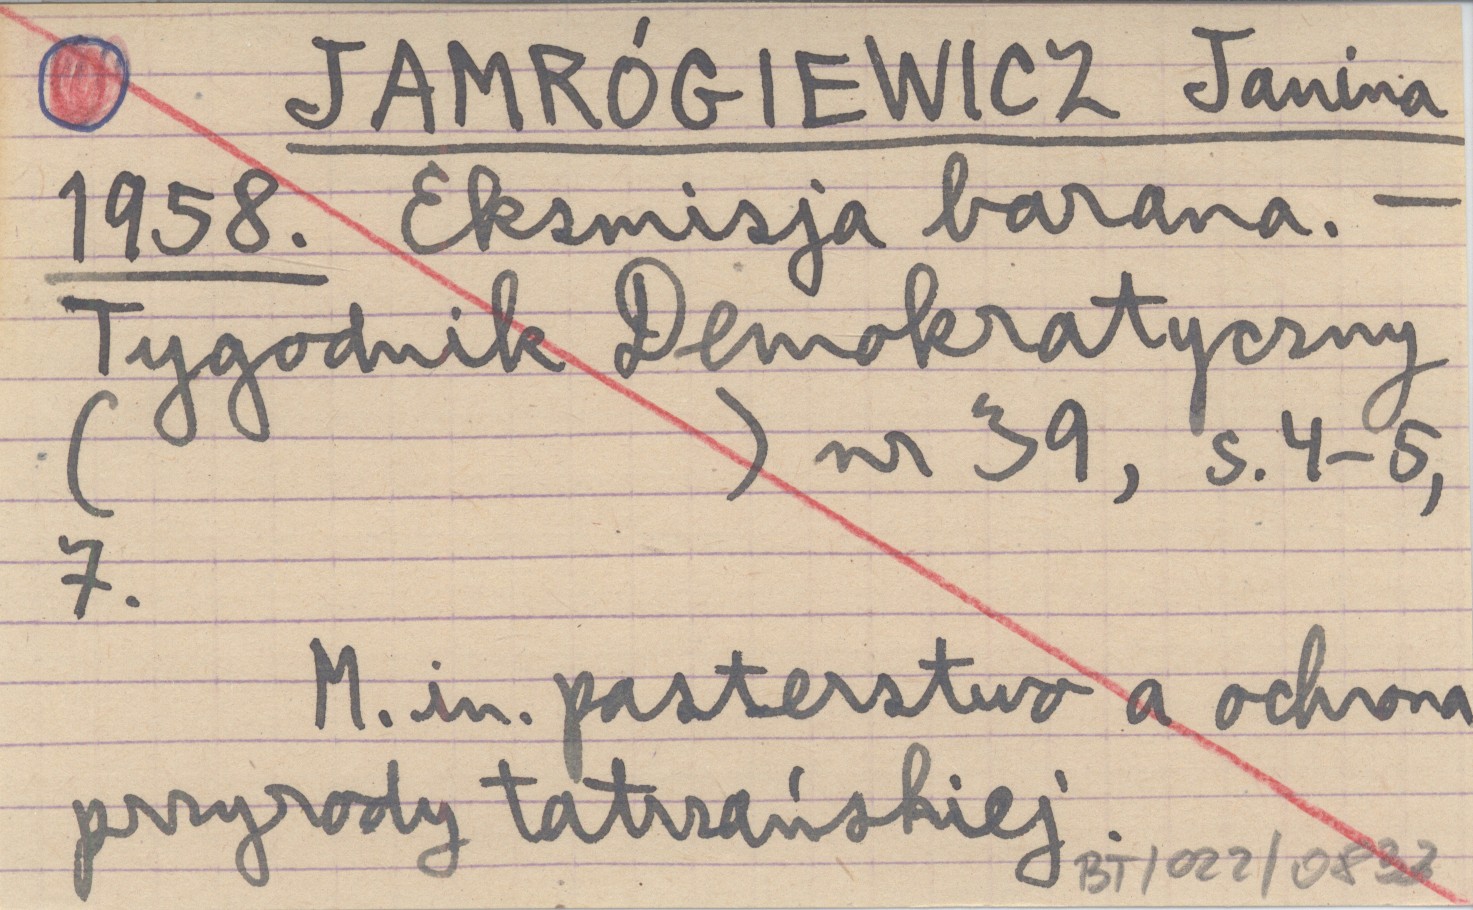 JAMRÓGIEWICZ Janina
1958. Eksmisja barana. —
Tygodnik Demokratyczny
( ) nr 39, s. 4-5,
7.
M. in. pasterstwo a ochrona
przyrody tatrzańskiej.
BT/022/0833